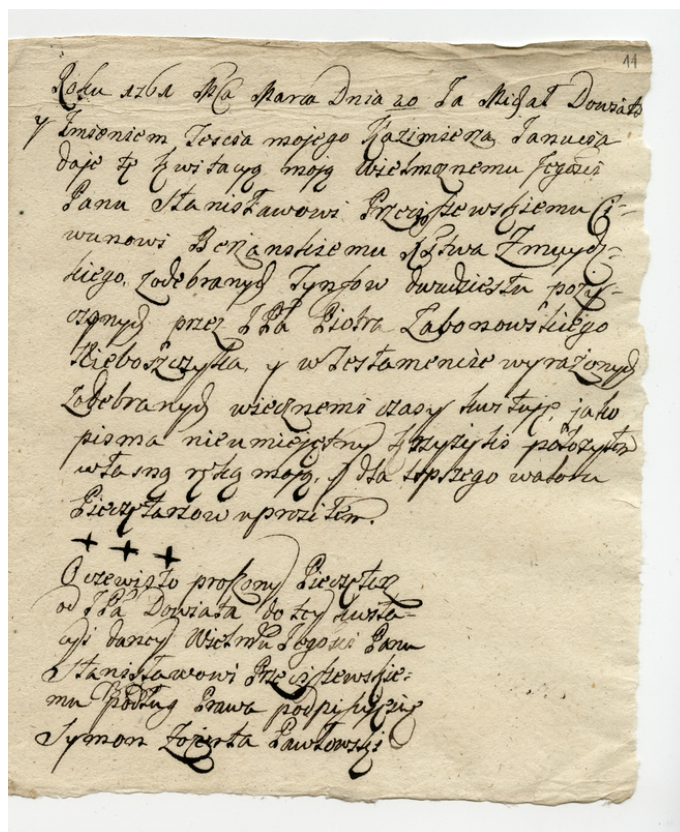 11
Roku 1761 Mca Marca Dnia 20 Ja Michał Dowiatt
y Imieniem Tescia mojego Kazimierza Janusza
daję tę kwitacyą moją Wielmożnemu Jegości
Panu Stanisławowi Przeciszewskiemu Ci-
wunowi Berżanskiemu Xstwa Zmuydz-
kiego, z odebranych Tynfow dwudziestu poży-
czonych przez JPa Piotra Labonowskiego
Nieboszczyka, y w Testamencie wyrażonych
z odebranych wiecznemi czasy kwituję, jako
pisma nieumiejętny krzyżyki położyłem
własną ręką moją, y dla lepszego waloru
Pieczętarzow uprosiłem.
+ + +
Oczewisto proszony Pieczętarz
od JPa Dowiata do tey kwita-
cyi daney Wielmu Jegości Panu
Stanisławowi Przeciszewskie-
mu podług Prawa podpisuję się
Symon Pawłowski